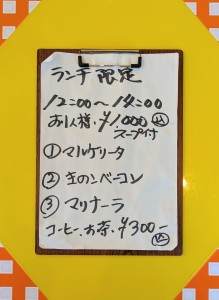 ランチ限定
12:00〜14:00
お1人様・¥1000 込
スープ付
① マルゲリータ
② 生のンベーコン
③ マリナーラ
コーヒー、お茶・¥300-
込